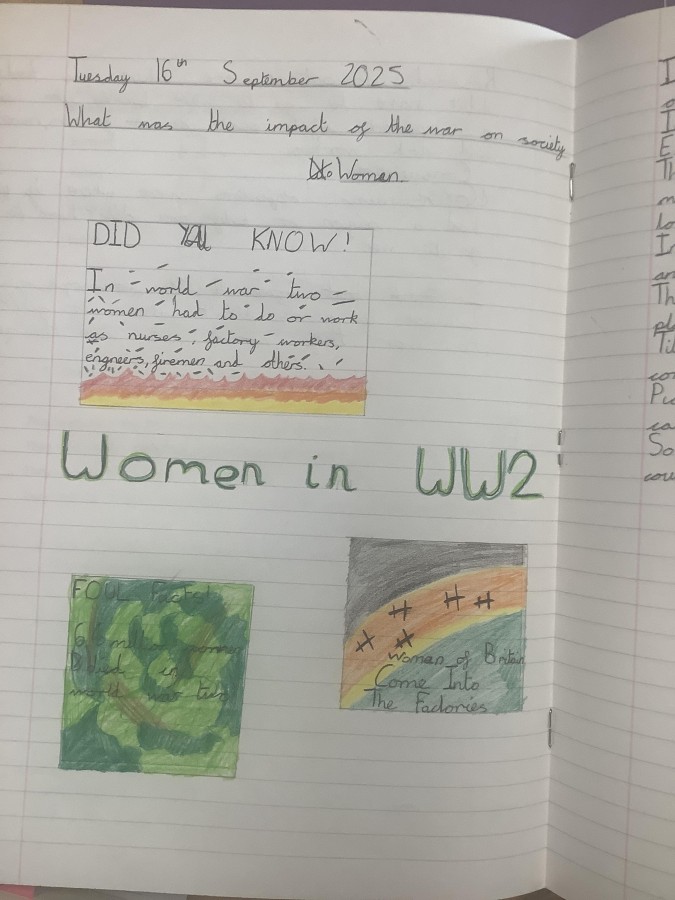 Tuesday 16th September 2025
What was the impact of the war on society
to Women
DID YOU KNOW!
In world war two
women had to do or work
as nurses, factory workers,
engneers, firemen and others.
Women in WW2
FOUL Facts!
million women
Died in
world war two
Woman of Britain
Come Into
The Factories
I
I
E
Th
m
lo
In
an
Th
pl
Ti
con
Pu
ca
So
cou